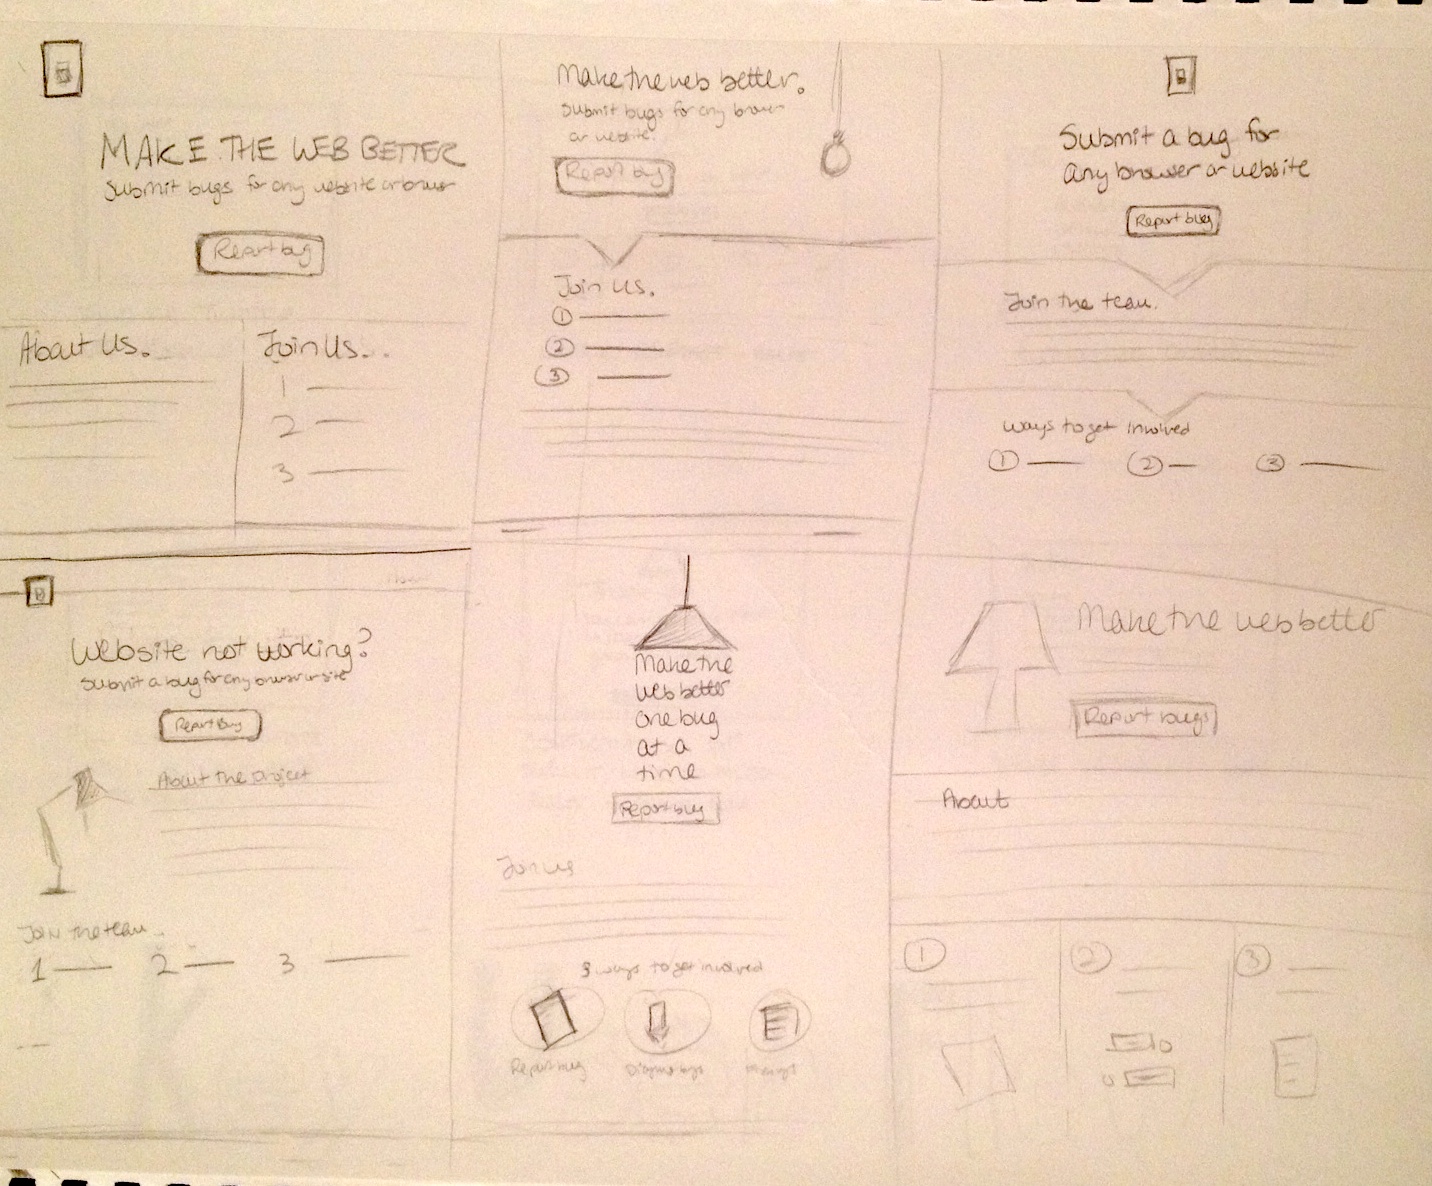 MAKE THE WEB BETTER
Submit bugs for any website or browser
Report bug
About Us.
Join Us...
1
2
3
Make the web better.
Submit bugs for any browser
or website.
Report bug
Join us.
1
2
3
Submit a bug for
any browser or website
Report bug
Join the team.
Ways to get involved
1
2
3
Website not working?
Submit a bug for any browser or site
Report Bug
About the project
Join the team...
1
2
3
Make the
web better
one bug
at a
time
Report bug
Join us
3 ways to get involved
Report bug
Diagnose bugs
Make the web better
Report bugs
About
1
2
3